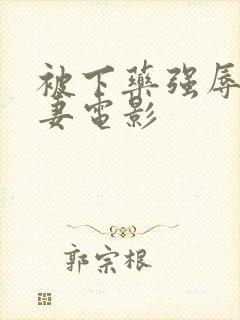 被下药强辱
妻电影
郭宗根